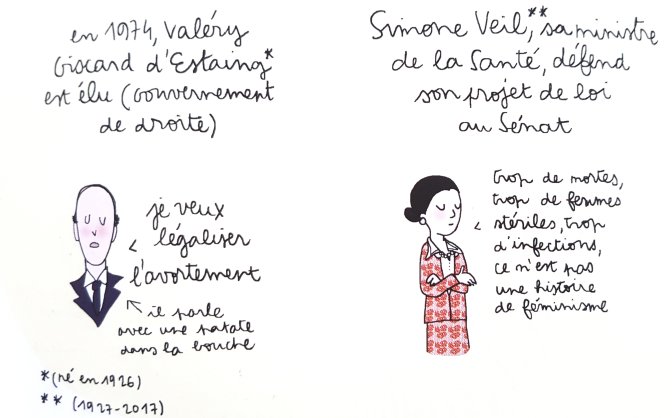 en 1974, Valéry
Giscard d'Estaing*
est élu (gouvernement
de droite)
je veux
légaliser
l'avortement
il parle
avec une patate
dans la bouche
*(né en 1926)
** (1927-2017)
Simone Veil,** sa ministre
de la Santé, défend
son projet de loi
au Sénat
trop de mortes,
trop de femmes
stériles, trop
d'infections,
ce n'est pas
une histoire
de féminisme